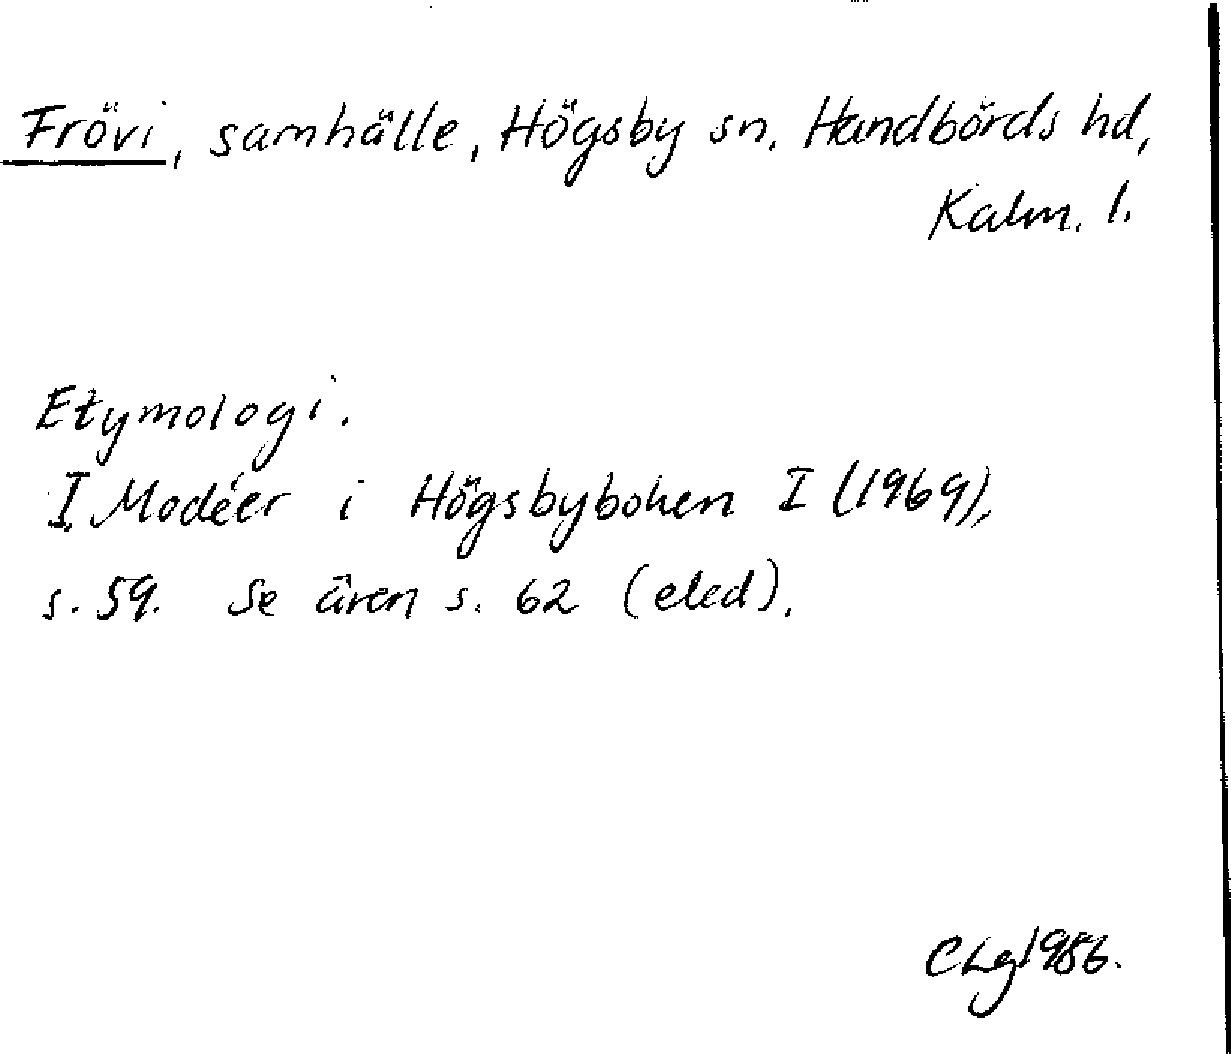 Frövi, samhälle, Högsby sn. Handbörds hd,
Kalm. l.
Etymologi.
I. Modéer i Högsbyboken I (1969),
s. 59. Se även s. 62 (eled).
CLg 1986.